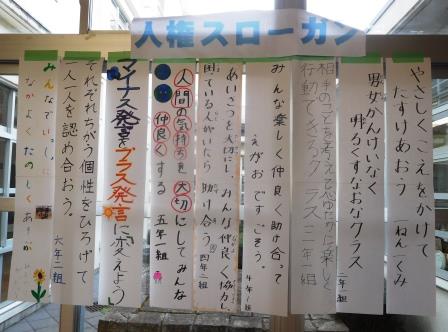 人権スローガン
やさしいこえをかけて
たすけあおう 一ねん一くみ
男女かんけいなく
明るくすなおなクラス 二年一組
相手のことを考えて心ゆたかに楽しく
行動できるクラス 三年一組
みんな楽しく仲良く助け合って
えがおですごそう。
四年一組
あいさつを大切にし、みんな仲良く協力し、
困っている人がいたら助け合う。四年二組
人間の気持ちを大切にしてみんな
仲良くする 五年一組
マイナス発言をプラス発言に変えよう
それぞれちがう個性をひろげて
一人一人を認め合おう。 六年一組
みんなでいっしょに
なかよくたのしく